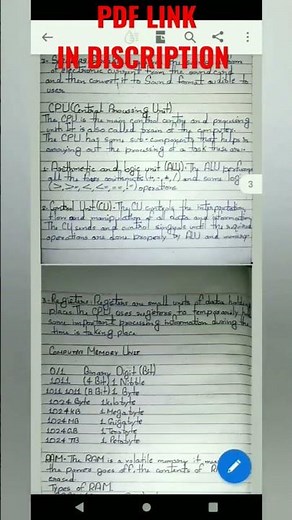 PDF LINK
IN DISCRIPTION
of electronic current from the sound card
and then convert it to sound format audible to
user.
CPU (Central Processing Unit)
The CPU is the main control entity and processing
unit. It is also called brain of the computer.
The CPU has some sub-components that helps in
carrying out the processing of a task. These are:-
1. Arithmetic and logic unit (ALU) - The ALU performs
all the four arithmetic (+, -, *, /) and some logical
(>, >=, <, <=, ==, !=) operations.
3
2. Control Unit (CU) - The CU controls the interpretation,
flow and manipulation of all data and information.
The CU sends and control signals until the required
operations are done properly by ALU and memory.
3. Registers - Registers are small units of data holding
place. The CPU uses registers to temporarily hold
some important processing information during the
time is taking place.
COMPUTER MEMORY UNIT
0/1 Binary Digit (Bit)
1011 (4 Bit) 1 Nibble
1011 1011 (8 Bit) 1 Byte
1024 Byte 1 Kilobyte
1024 KB 1 Megabyte
1024 MB 1 Gigabyte
1024 GB 1 Terabyte
1024 TB 1 Petabyte
RAM - The RAM is a volatile memory it
the power goes off, the contents of
erased.
Types of RAM